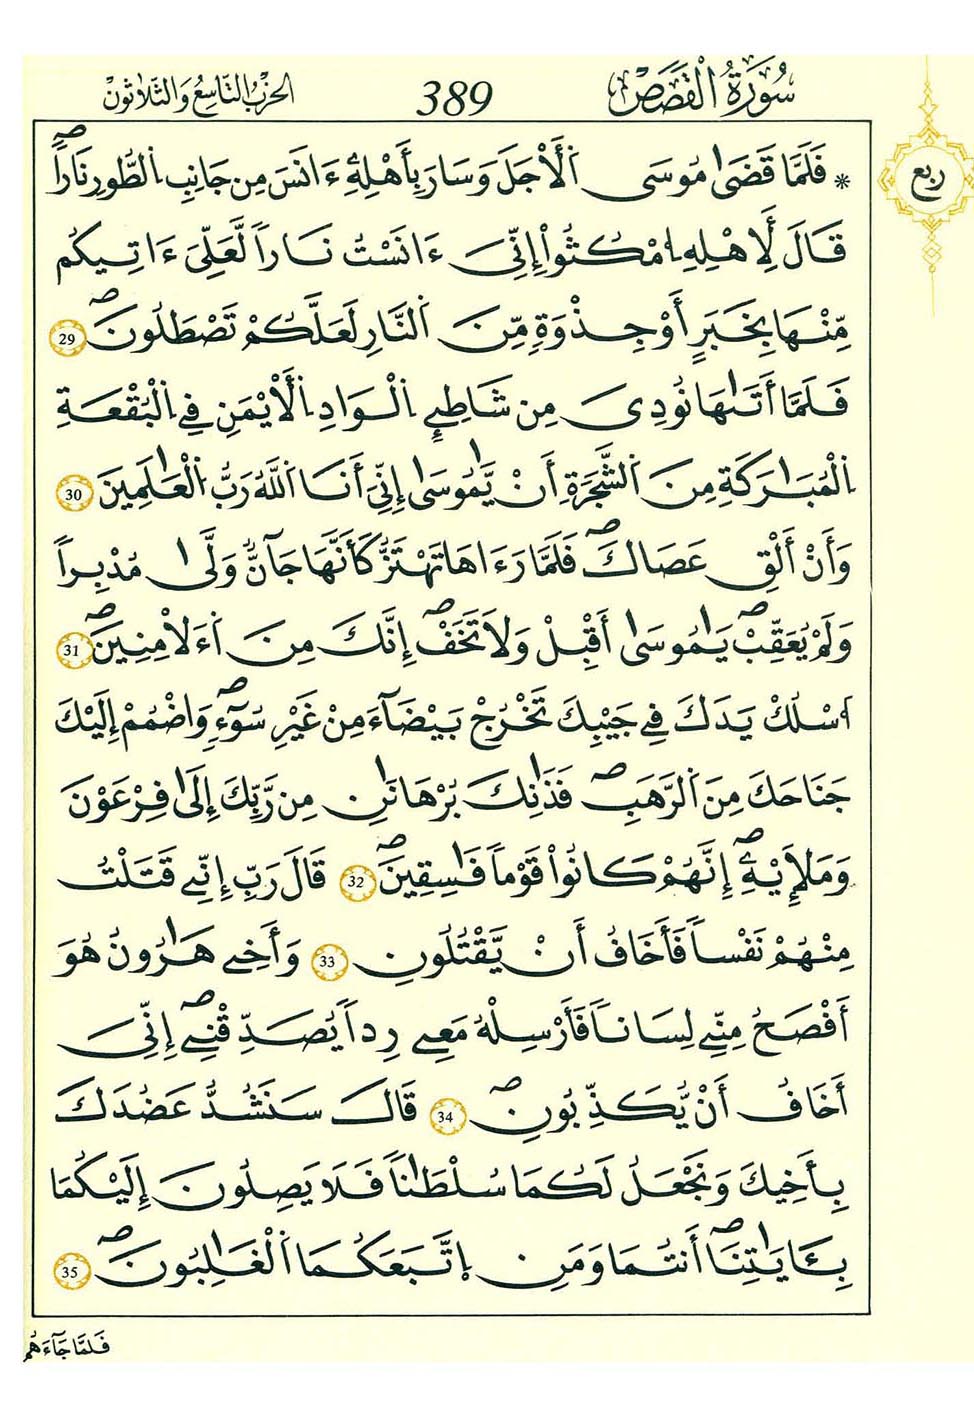 سُورَةُ الْقَصَصِ 389 الحِزْبُ التَّاسِعُ وَالثَّلَاثُونَ
ربع
* فَلَمَّا قَضَىٰ مُوسَى اَ۬لْأَجَلَ وَسَارَ بِأَهْلِهِۦٓ ءَانَسَ مِن جَانِبِ اِ۬لطُّورِ نَاراٗۖ
قَالَ لِأَهْلِهِ اِ۟مْكُثُوٓاْ إِنِّيَ ءَانَسْتُ نَاراٗ لَّعَلِّيَ ءَاتِيكُم
مِّنْهَا بِخَبَرٍ أَوْ جِذْوَةٖ مِّنَ اَ۬لنَّارِ لَعَلَّكُمْ تَصْطَلُونَۖ 29
فَلَمَّا أَتَىٰهَا نُودِيَ مِن شَٰطِےِٕ اِ۬لْوَادِ اِ۬لْأَيْمَنِ فِے اِ۬لْبُقْعَةِ
اِ۬لْمُبَٰرَكَةِ مِنَ اَ۬لشَّجَرَةِ أَنْ يَّٰمُوسَىٰ إِنِّيَ أَنَا اَ۬للَّهُ رَبُّ اُ۬لْعَٰلَمِينَ 30
وَأَنْ أَلْقِ عَصَاكَۖ فَلَمَّا رَءَاهَا تَهْتَزُّ كَأَنَّهَا جَآنّٞ وَلَّىٰ مُدْبِراٗ
وَلَمْ يُعَقِّبْۖ يَٰمُوسَىٰ أَقْبِلْ وَلَا تَخَفْۖ إِنَّكَ مِنَ اَ۬لْأٓمِنِينَۖ 31
اَ۟سْلُكْ يَدَكَ فِے جَيْبِكَ تَخْرُجْ بَيْضَآءَ مِنْ غَيْرِ سُوٓءٖۖ وَاضْمُمْ إِلَيْكَ
جَنَاحَكَ مِنَ اَ۬لرَّهَبِۖ فَذَٰنِكَ بُرْهَٰنَٰنِ مِن رَّبِّكَ إِلَىٰ فِرْعَوْنَ
وَمَلَإِيْهِۦٓۖ إِنَّهُمْ كَانُواْ قَوْماٗ فَٰسِقِينَۖ 32 قَالَ رَبِّ إِنِّے قَتَلْتُ
مِنْهُمْ نَفْساٗ فَأَخَافُ أَنْ يَّقْتُلُونِ 33 وَأَخِے هَٰرُونُ هُوَ
أَفْصَحُ مِنِّے لِسَاناٗ فَأَرْسِلْهُ مَعِے رِداٗ يُصَدِّقْنِےۖ إِنِّيَ
أَخَافُ أَنْ يُّكَذِّبُونِۖ 34 قَالَ سَنَشُدُّ عَضُدَكَ
بِأَخِيكَ وَنَجْعَلُ لَكُمَا سُلْطَٰناٗ فَلَا يَصِلُونَ إِلَيْكُمَا
بِـَٔايَٰتِنَاۖ أَنتُمَا وَمَنِ اِ۪تَّبَعَكُمَا اَ۬لْغَٰلِبُونَۖ 35
فَلَمَّا جَآءَهُم